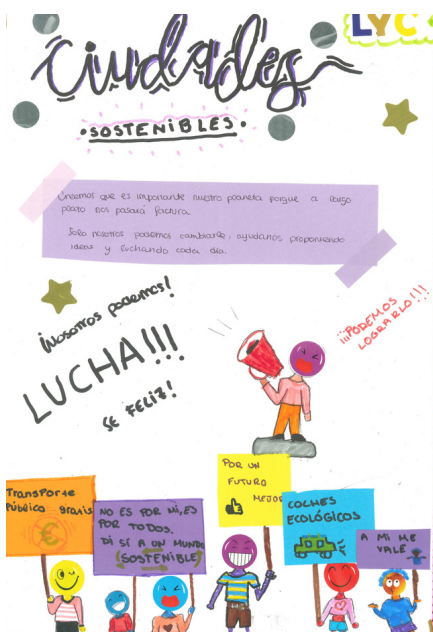 LYC
Ciudades
·SOSTENIBLES·
Creemos que es importante nuestro planeta porque a largo
plazo nos pasará factura.
Solo nosotros podemos cambiarle, ayudanos proponiendo
ideas y luchando cada día.
¡Nosotros podemos!
LUCHA!!!
SE FELIZ!
¡¡¡PODEMOS
LOGRARLO!!!
Transporte
Público gratis
€
NO ES POR MI, ES
POR TODOS.
DI SÍ A UN MUNDO
(SOSTENIBLE)
POR UN
FUTURO
MEJOR
COCHES
ECOLÓGICOS
A MI ME
VALE